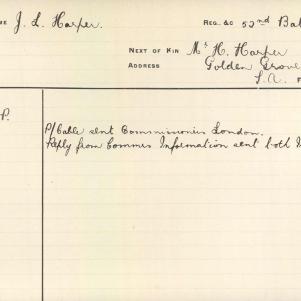 ME J. L. Harper. REG. &C 52nd Bat
NEXT OF KIN Mr H. Harper
ADDRESS Golden Grove
S.A. F
P.
P/Cable sent Commissioner London.
Reply from Commrs Information sent both